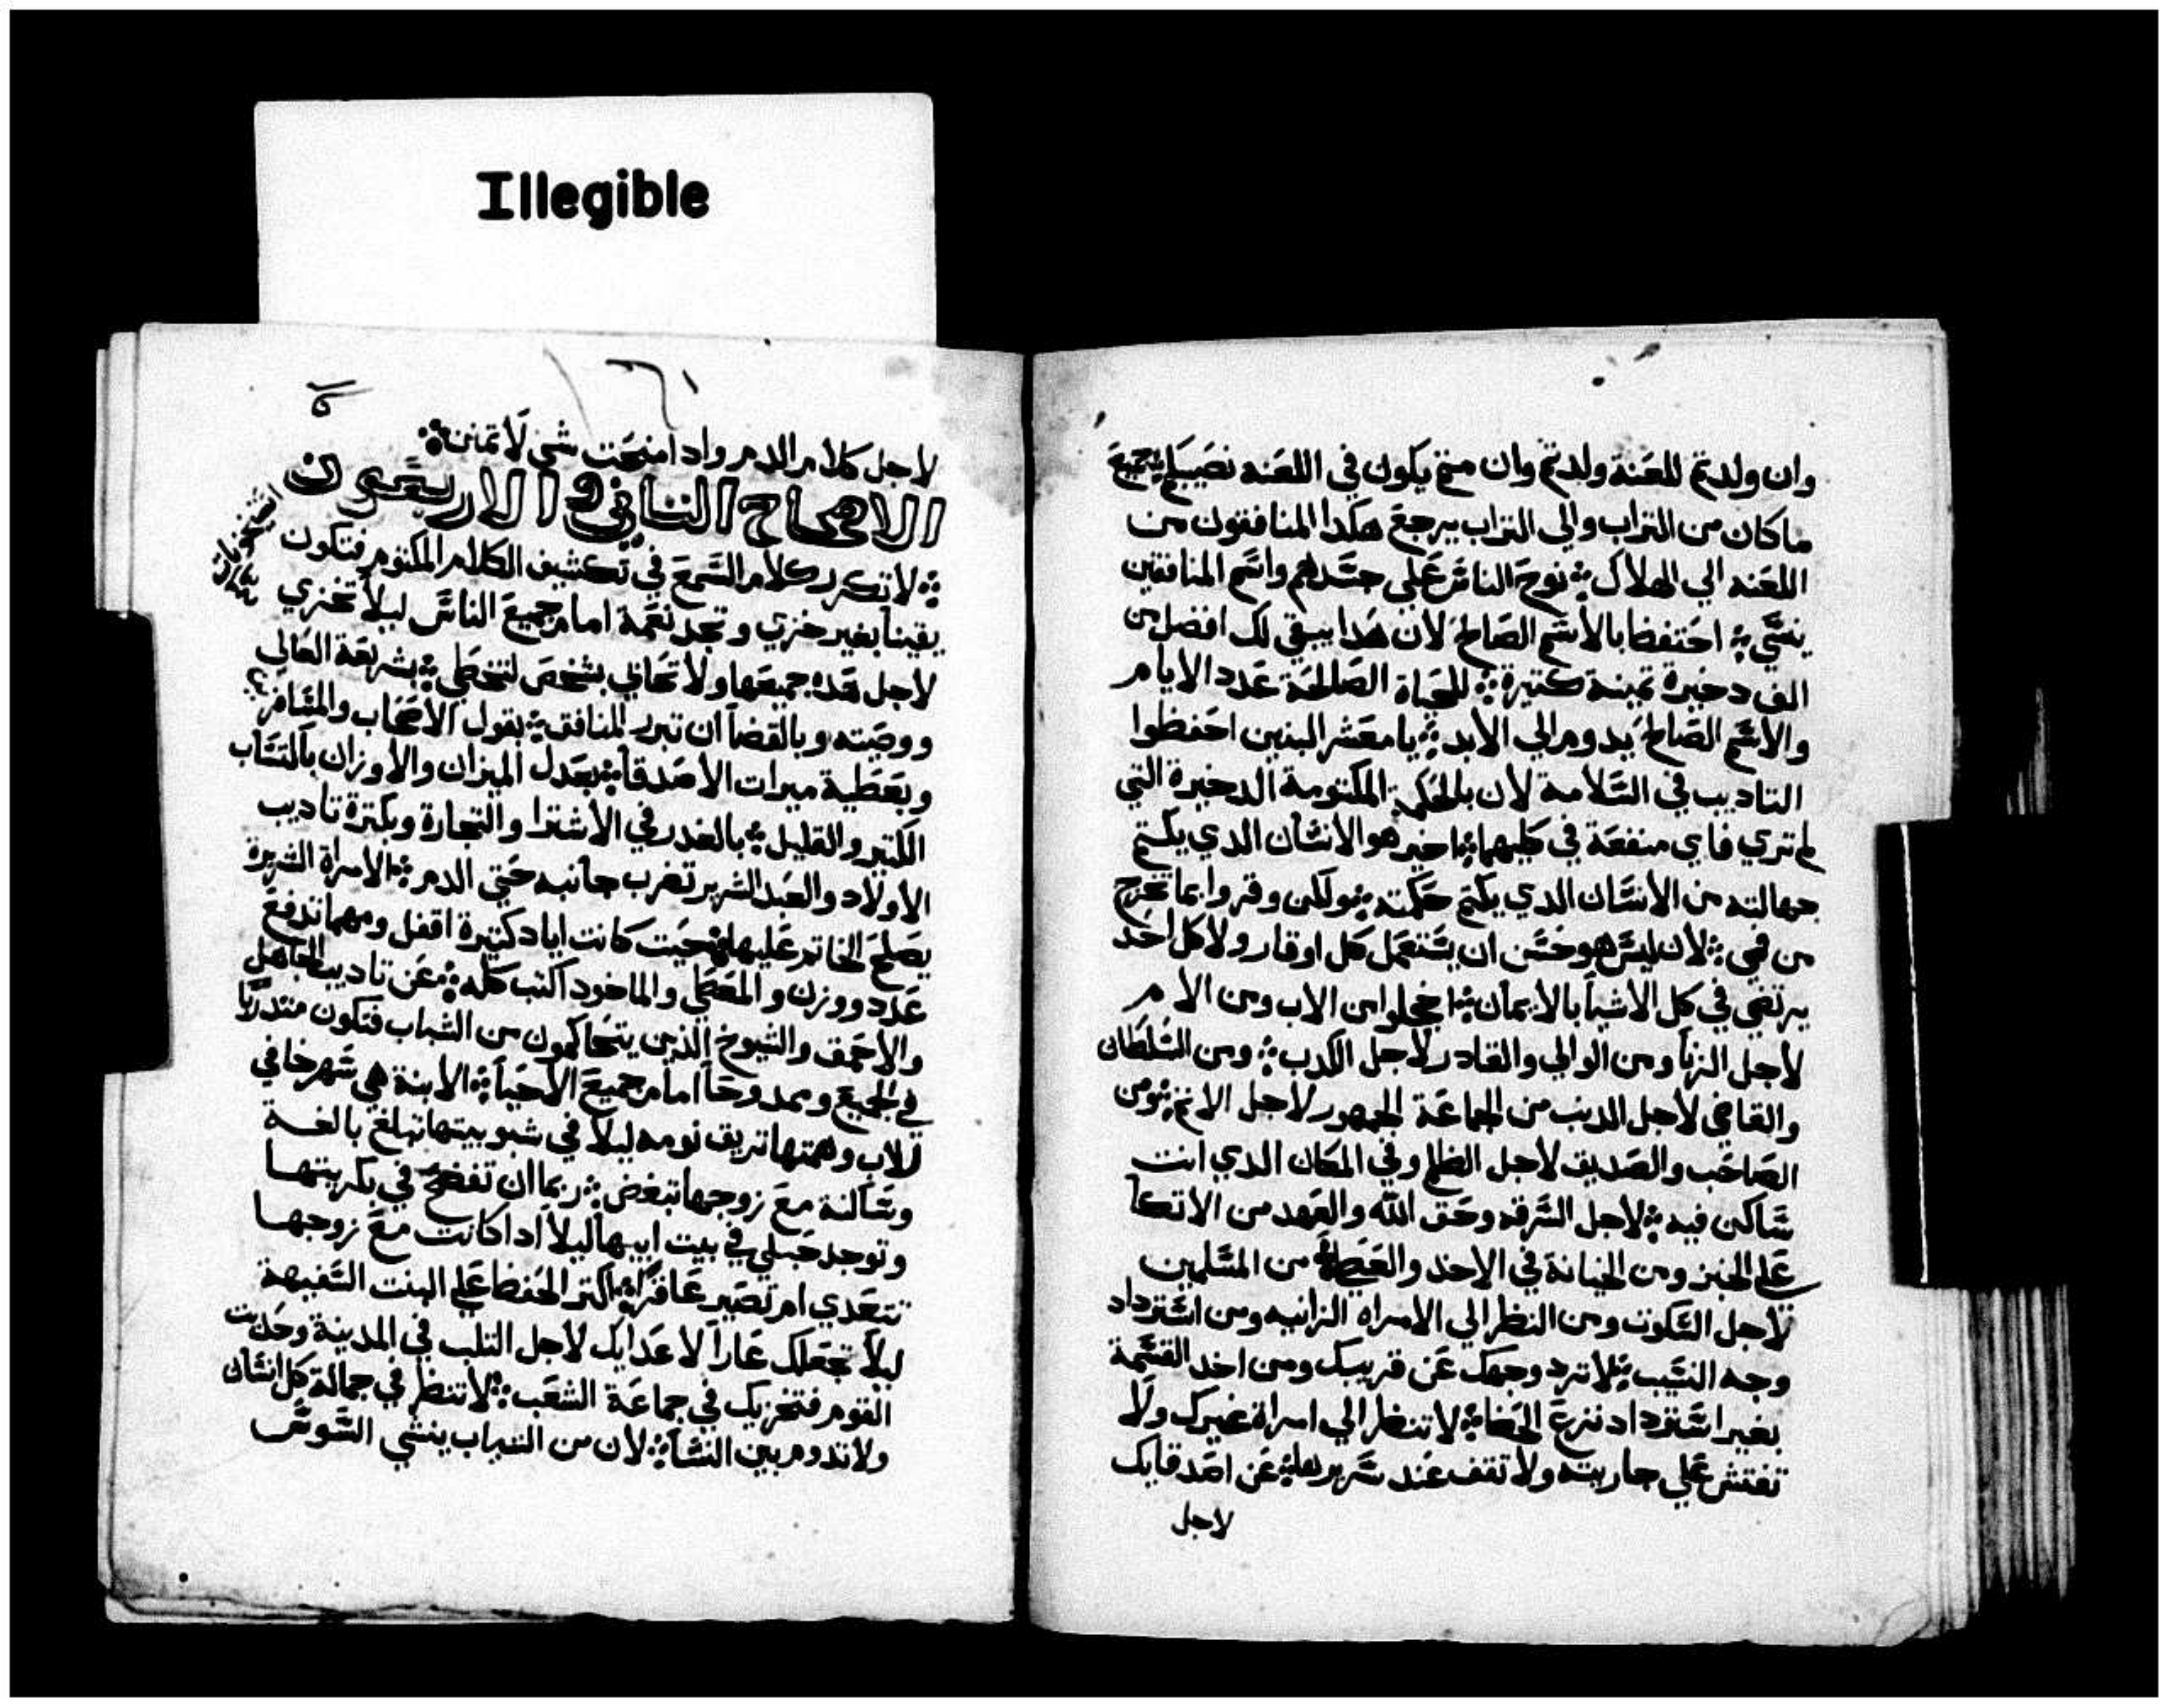 Illegible
وان ولدتم للعنة ولدتم وان متم يكون في اللعنه نصيبكم جميع
ما كان من التراب والي التراب يرجع هكدا المنافقون من
اللعنه الي الهلاك نوح الناس علي جسدهم واسم المنافقين
احتفظ بالاسم الصالح لان هدا يبقي لك افضل من
الف دخيرة تمينة كتيرة للحياة الصالحة عدد الايام
والاسم الصالح يدوم الي الابد يا معشر البنين احفظوا
التاديب في السلامة لان الحكمة المكتومة الدخيرة التي
لم تري فاي منفعة في كليهما اخير هو الانسان الدي يكتم
جهالته من الانسان الدي يكتم حكمته ولكن وقروا بما تخرج
من فمي لان ليس هو حسن ان يستعمل كل اوقار ولا كل احد
يرتضي في كل الاشيا بالايمان اخجلوا من الاب ومن الام
لاجل الزنا ومن الوالي والقادر لاجل الكدب ومن السلطان
والقاضي لاجل الدنب من الجماعة الجمهور لاجل الاتم ومن
الصاحب والصديق لاجل الظلم وفي المكان الدي انت
ساكن فيه لاجل السرقه وحق الله والعهد من الاتكا
علي الخبز ومن الخيانة في الاخد والعطا من المسلمين
لاجل السكوت ومن النظر الي الامراه الزانيه ومن استرداد
وجه النسيب لا ترد وجهك عن قريبك ومن اخد القسمة
بغير استرداد نزع الخطا لا تنظر الي امراة غيرك ولا
تفتش علي جاريته ولا تقف عند سريرها عن اصدقايك
لاجل
١٦١
لاجل كلام الدم وادا منحت شي لا تمنن
الاصحاح التاني والاربعون
لا تكرر كلام السمع في تكشيف الكلام المكتوم فتكون
يقينا بغير خزي وتجد نعمة امام جميع الناس ليلا تخزي
لاجل هده جميعها ولا تحابي بشخص لتخطي بشريعة العالي
ووصيته وبالقضا ان تبرر المنافق بقول الاصحاب والمسافر
وبعطية ميرات الاصدقا بعدل الميزان والاوزان بالتساب
الكتير والقليل بالغدر في الاشترا والتجارة وبكترة تاديب
الاولاد والعبد الشرير تضرب جانبه حتي الدم الامراة الشريرة
يصلح الخاتم عليها حيت كانت اياد كتيرة اقفل ومهما تدفع
عدد ووزن والمعطي والماخود اكتب كله عن تاديب الجاهل
والاحمق والشيوخ الدين يتحاكمون من الشباب فتكون متدربا
في الجميع وممدوحا امام جميع الاحيا الابنة هي سهر خافي
للاب وهمتها تريق نومه ليلا في شبوبيتها تبلغ بالغـة
وساكنة مع زوجها تبغض ربما ان تفضح في بكريتهـا
وتوجد حبلي في بيت ابيها ليلا ادا كانت مع زوجهـا
تتعدي ام تصير عاقرا اكتر الحفظ علي البنت السفيهة
ليلا تجعلك عارا لاعدايك لاجل التلب في المدينة وحديت
القوم فتخزيك في جماعة الشعب لا تنظر في جمالة كل انسان
ولا تدوم بين النسا لان من التياب ينشي السوس